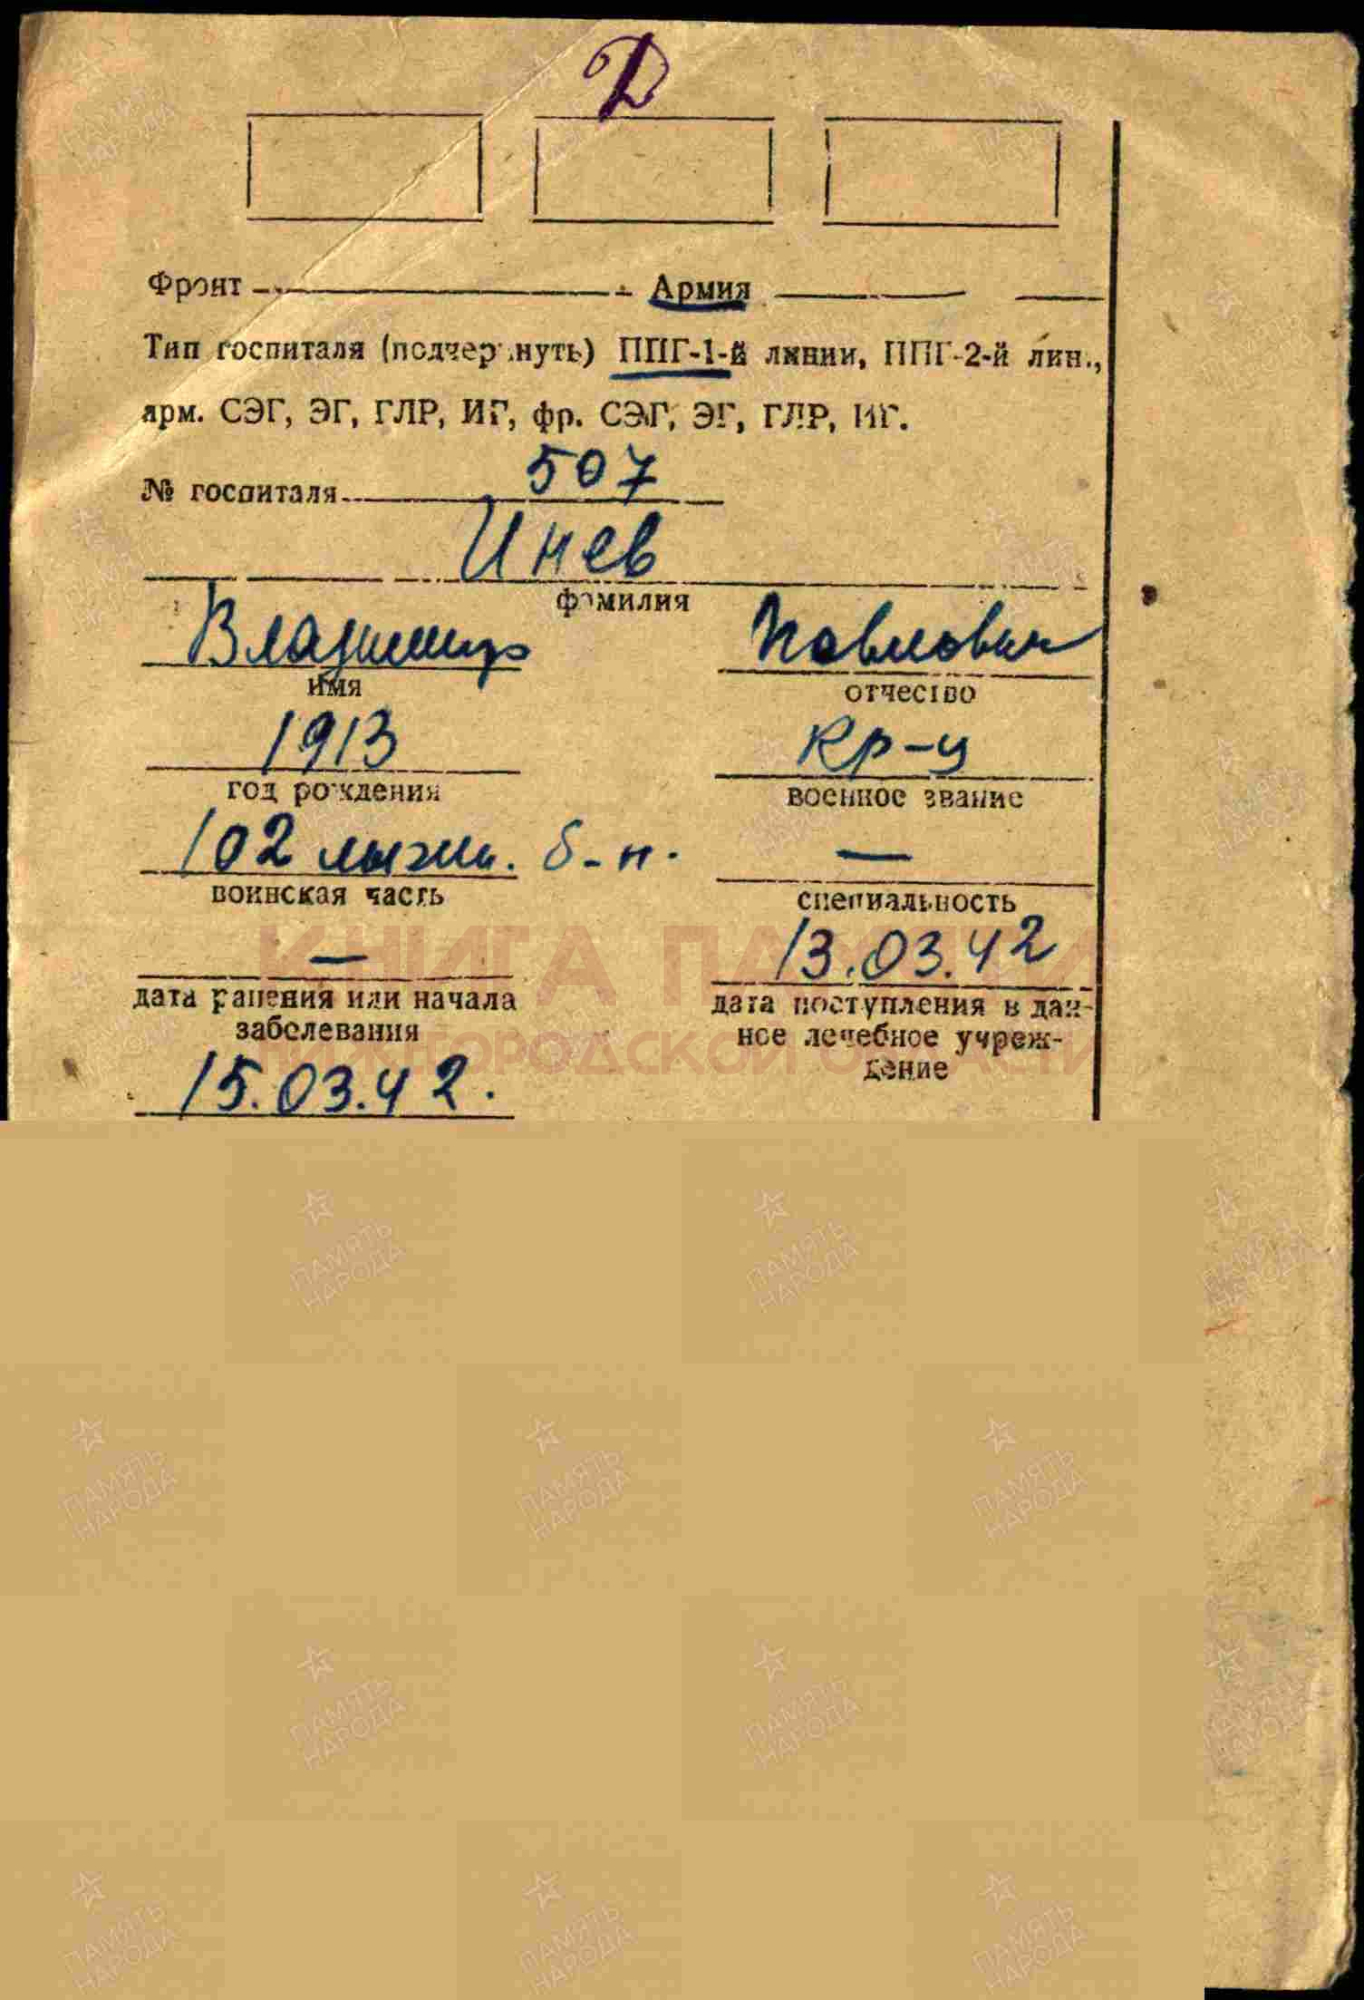 Д
Фронт Армия
Тип госпиталя (подчеркнуть) ППГ-1-й линии, ППГ-2-й лин.,
арм. СЭГ, ЭГ, ГЛР, ИГ, фр. СЭГ, ЭГ, ГЛР, ИГ.
№ госпиталя 507
Инев
фамилия
Владимир Павлович
имя отчество
1913 кр-ц
год рождения военное звание
102 лыжн. б-н. —
воинская часть специальность
— 13.03.42
дата ранения или начала дата поступления в дан-
заболевания ное лечебное учреж-
дение
15.03.42.
КНИГА ПАМЯТИ
НИЖЕГОРОДСКОЙ ОБЛАСТИ
ПАМЯТЬ
НАРОДА